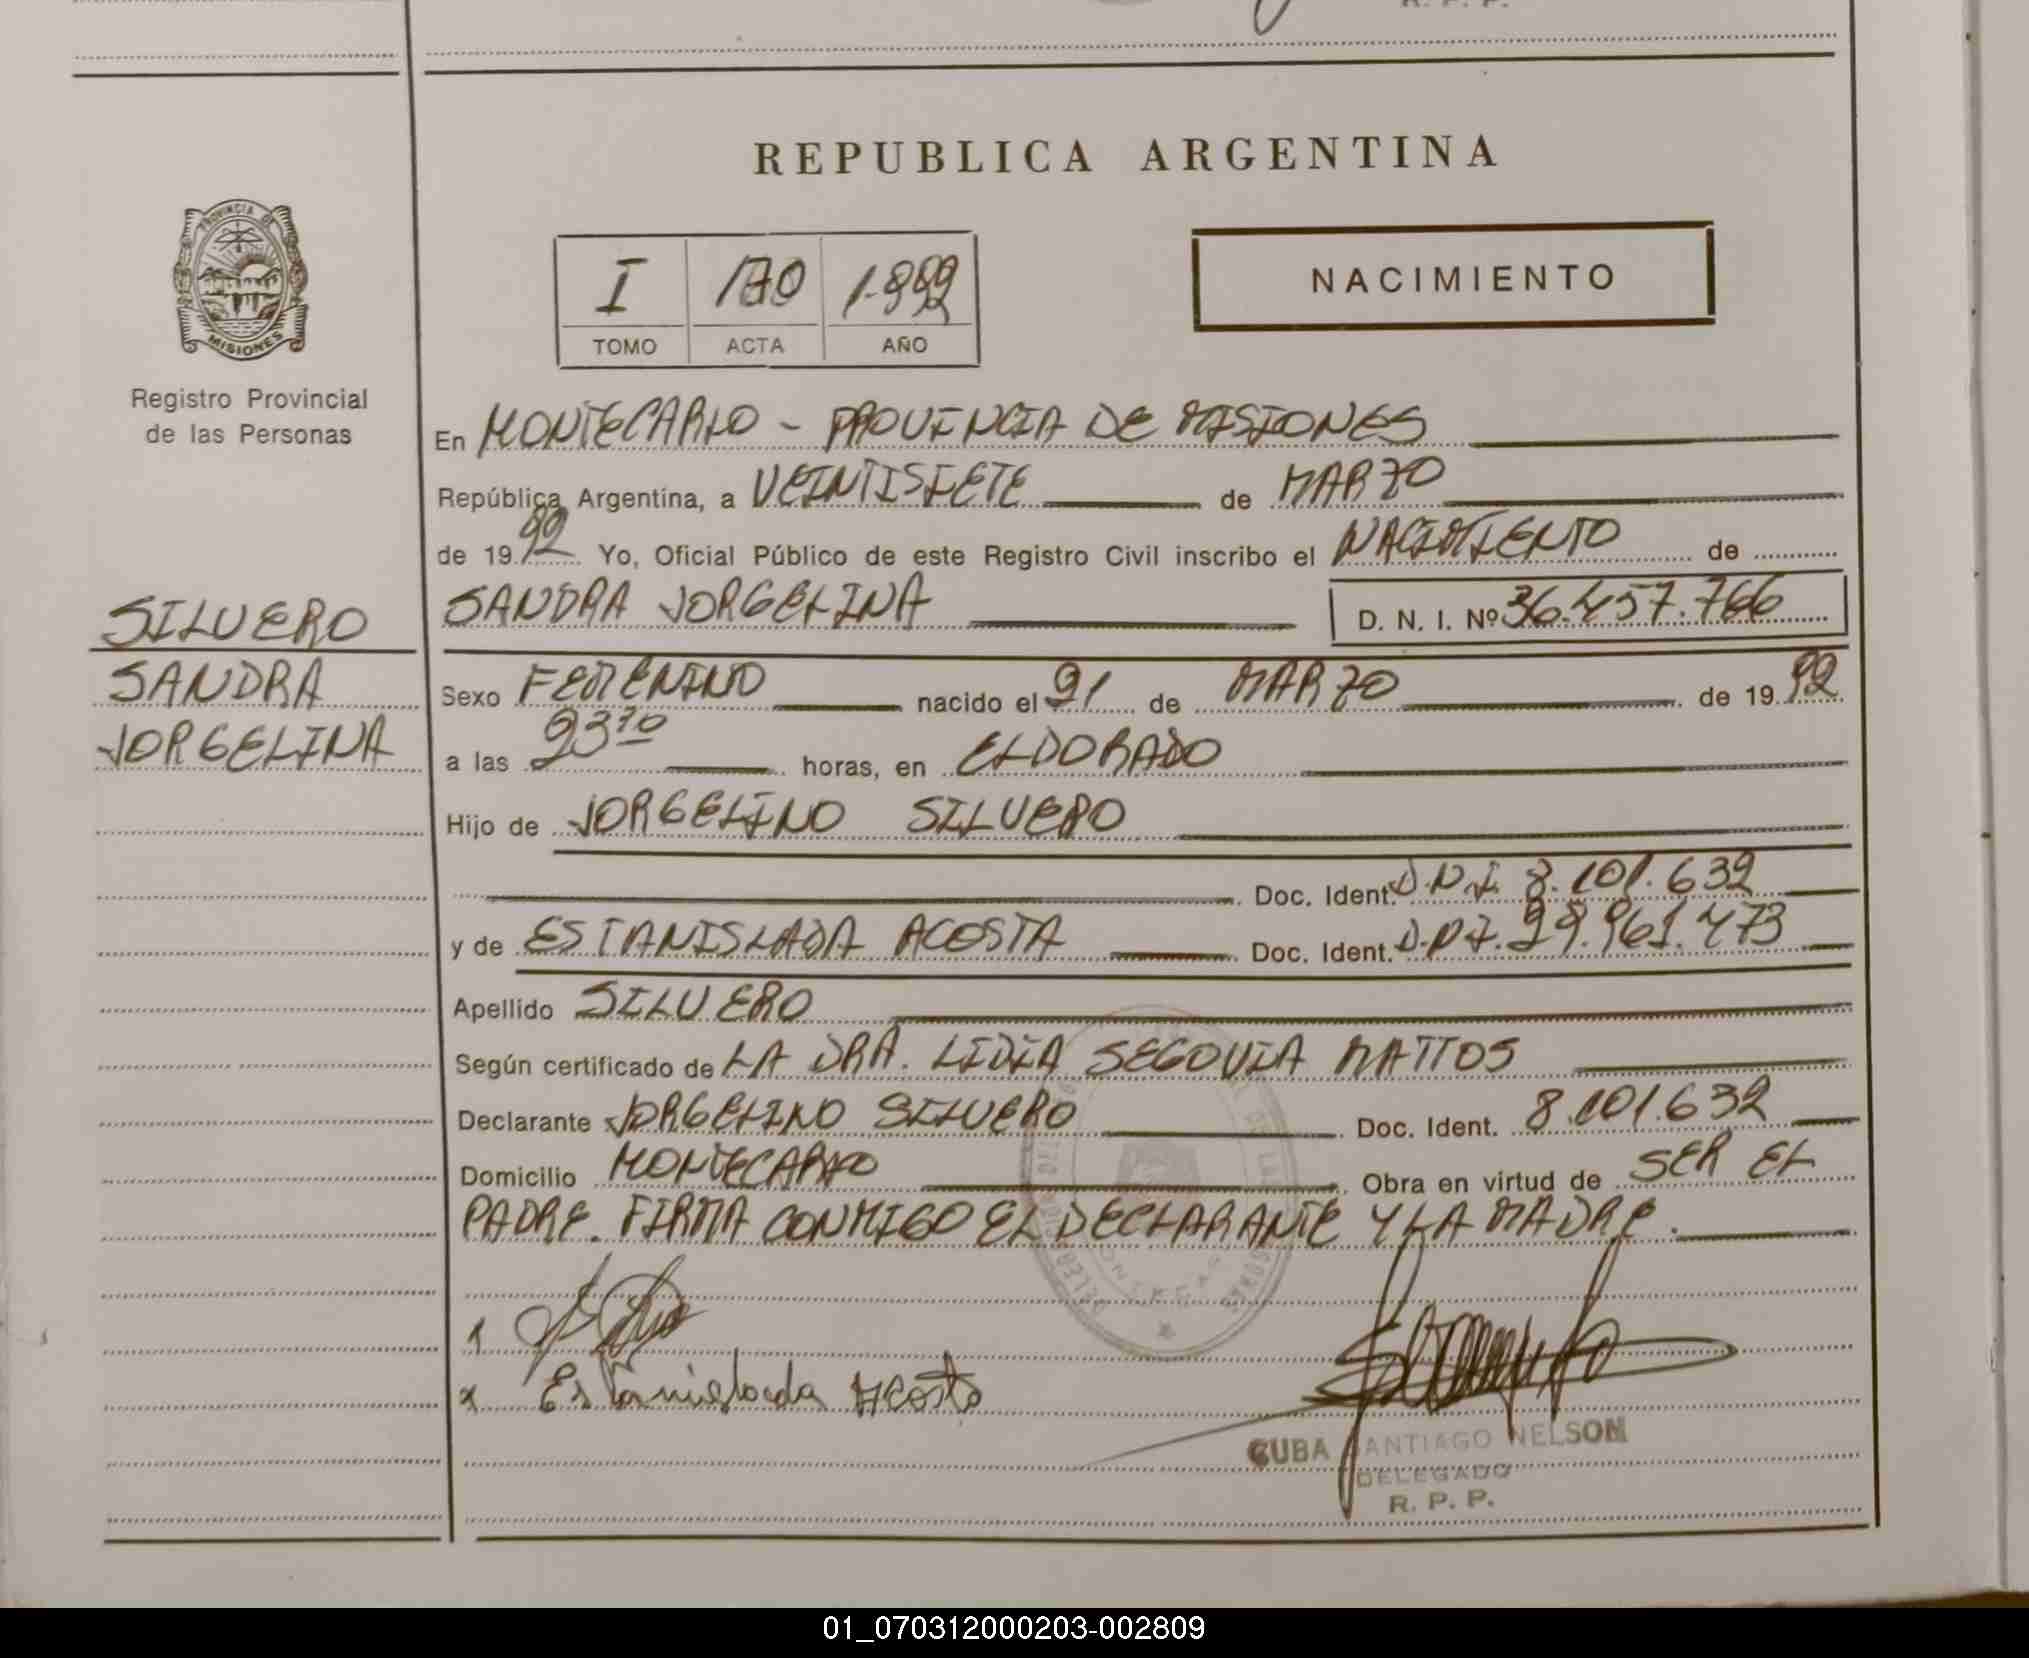 R. P. P.
REPUBLICA ARGENTINA
PROVINCIA DE
MISIONES
Registro Provincial
de las Personas
I 170 1.992
TOMO ACTA AÑO
NACIMIENTO
En MONTECARLO - PROVINCIA DE MISIONES
República Argentina, a VEINTISIETE de MARZO
de 19 92 Yo, Oficial Público de este Registro Civil inscribo el NACIMIENTO de
SILVERO
SANDRA JORGELINA D. N. I. Nº 36.457.766
SANDRA
Sexo FEMENINO nacido el 21 de MARZO de 19 92
JORGELINA
a las 23 10 horas, en ELDORADO
Hijo de JORGELINO SILVERO
Doc. Ident. D.N.I. 8.101.632
y de ESTANISLADA ACOSTA Doc. Ident. D.N.I. 29.961.473
Apellido SILVERO
Según certificado de LA DRA. LIDIA SEGOVIA MATTOS
Declarante JORGELINO SILVERO Doc. Ident. 8.101.632
Domicilio MONTECARLO Obra en virtud de SER EL
PADRE. FIRMA CONMIGO EL DECLARANTE Y LA MADRE.
Estanislada Acosta
CUBA SANTIAGO NELSON
DELEGADO
R. P. P.
01_070312000203-002809